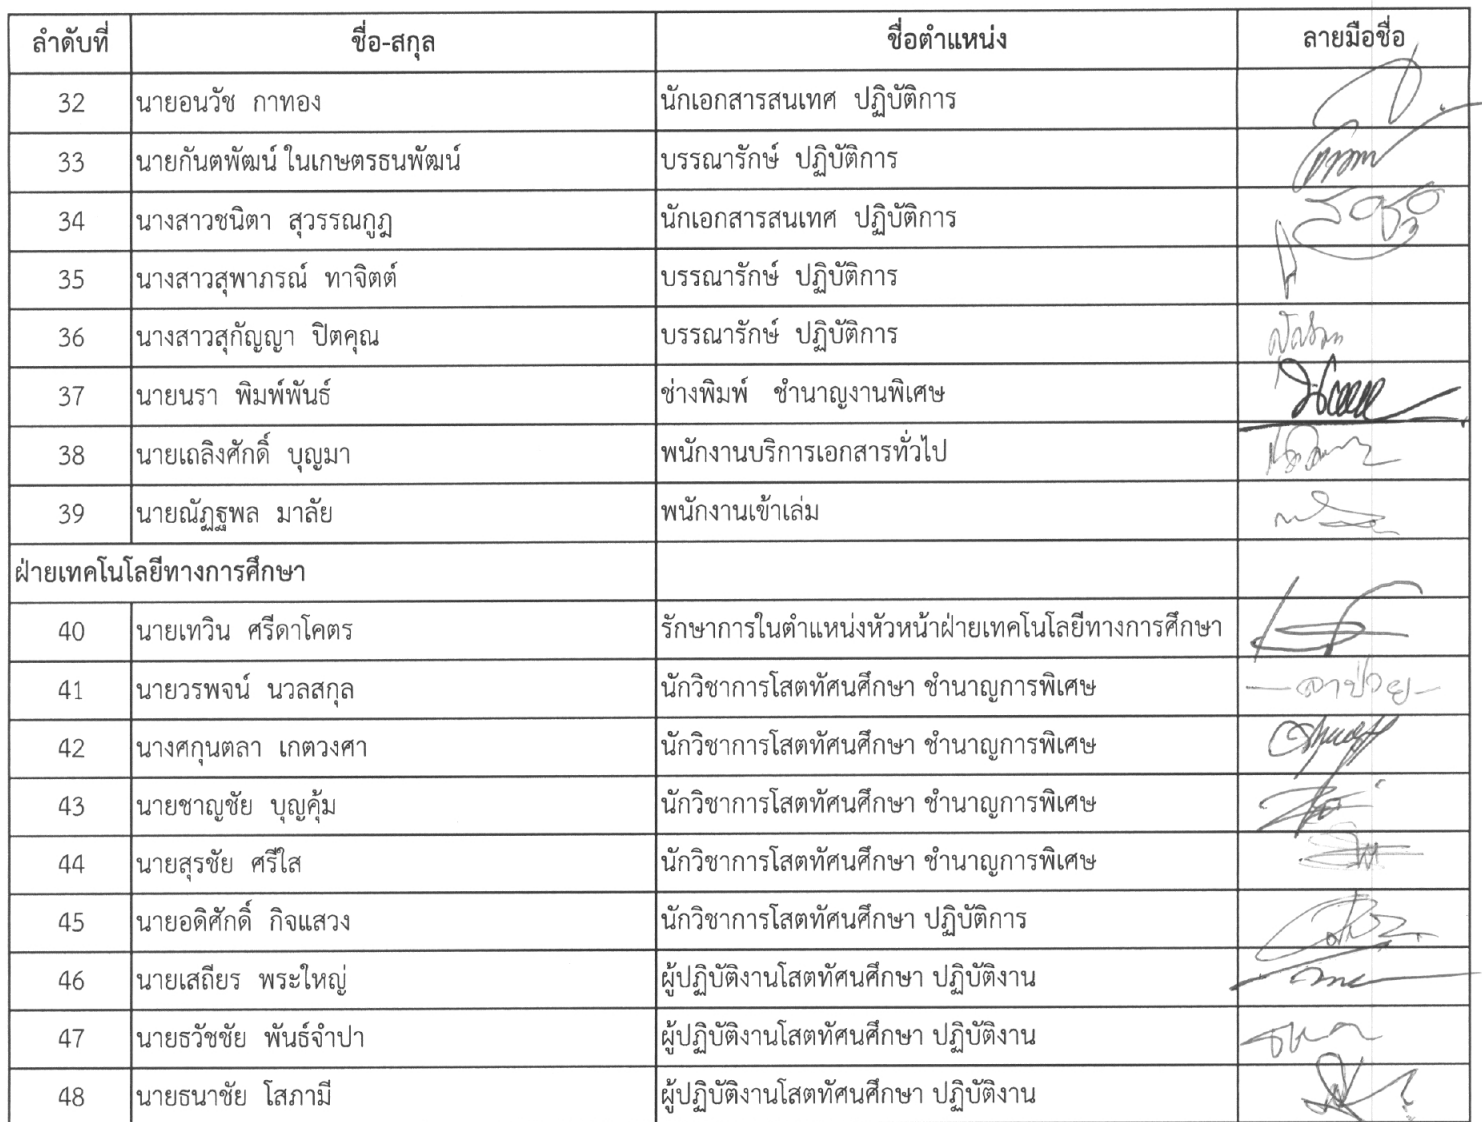 ลำดับที่ ชื่อ-สกุล ชื่อตำแหน่ง ลายมือชื่อ
32 นายอนวัช กาทอง นักเอกสารสนเทศ ปฏิบัติการ
33 นายกันตพัฒน์ ในเกษตรธนพัฒน์ บรรณารักษ์ ปฏิบัติการ
34 นางสาวชนิตา สุวรรณกูฏ นักเอกสารสนเทศ ปฏิบัติการ
35 นางสาวสุพาภรณ์ ทาจิตต์ บรรณารักษ์ ปฏิบัติการ
36 นางสาวสุกัญญา ปิตคุณ บรรณารักษ์ ปฏิบัติการ
37 นายนรา พิมพ์พันธ์ ช่างพิมพ์ ชำนาญงานพิเศษ
38 นายเถลิงศักดิ์ บุญมา พนักงานบริการเอกสารทั่วไป
39 นายณัฏฐพล มาลัย พนักงานเข้าเล่ม
ฝ่ายเทคโนโลยีทางการศึกษา
40 นายเทวิน ศรีดาโคตร รักษาการในตำแหน่งหัวหน้าฝ่ายเทคโนโลยีทางการศึกษา
41 นายวรพจน์ นวลสกุล นักวิชาการโสตทัศนศึกษา ชำนาญการพิเศษ - ลาป่วย -
42 นางศกุนตลา เกตวงศา นักวิชาการโสตทัศนศึกษา ชำนาญการพิเศษ
43 นายชาญชัย บุญคุ้ม นักวิชาการโสตทัศนศึกษา ชำนาญการพิเศษ
44 นายสุรชัย ศรีใส นักวิชาการโสตทัศนศึกษา ชำนาญการพิเศษ
45 นายอดิศักดิ์ กิจแสวง นักวิชาการโสตทัศนศึกษา ปฏิบัติการ
46 นายเสถียร พระใหญ่ ผู้ปฏิบัติงานโสตทัศนศึกษา ปฏิบัติงาน
47 นายธวัชชัย พันธ์จำปา ผู้ปฏิบัติงานโสตทัศนศึกษา ปฏิบัติงาน
48 นายธนาชัย โสภามี ผู้ปฏิบัติงานโสตทัศนศึกษา ปฏิบัติงาน